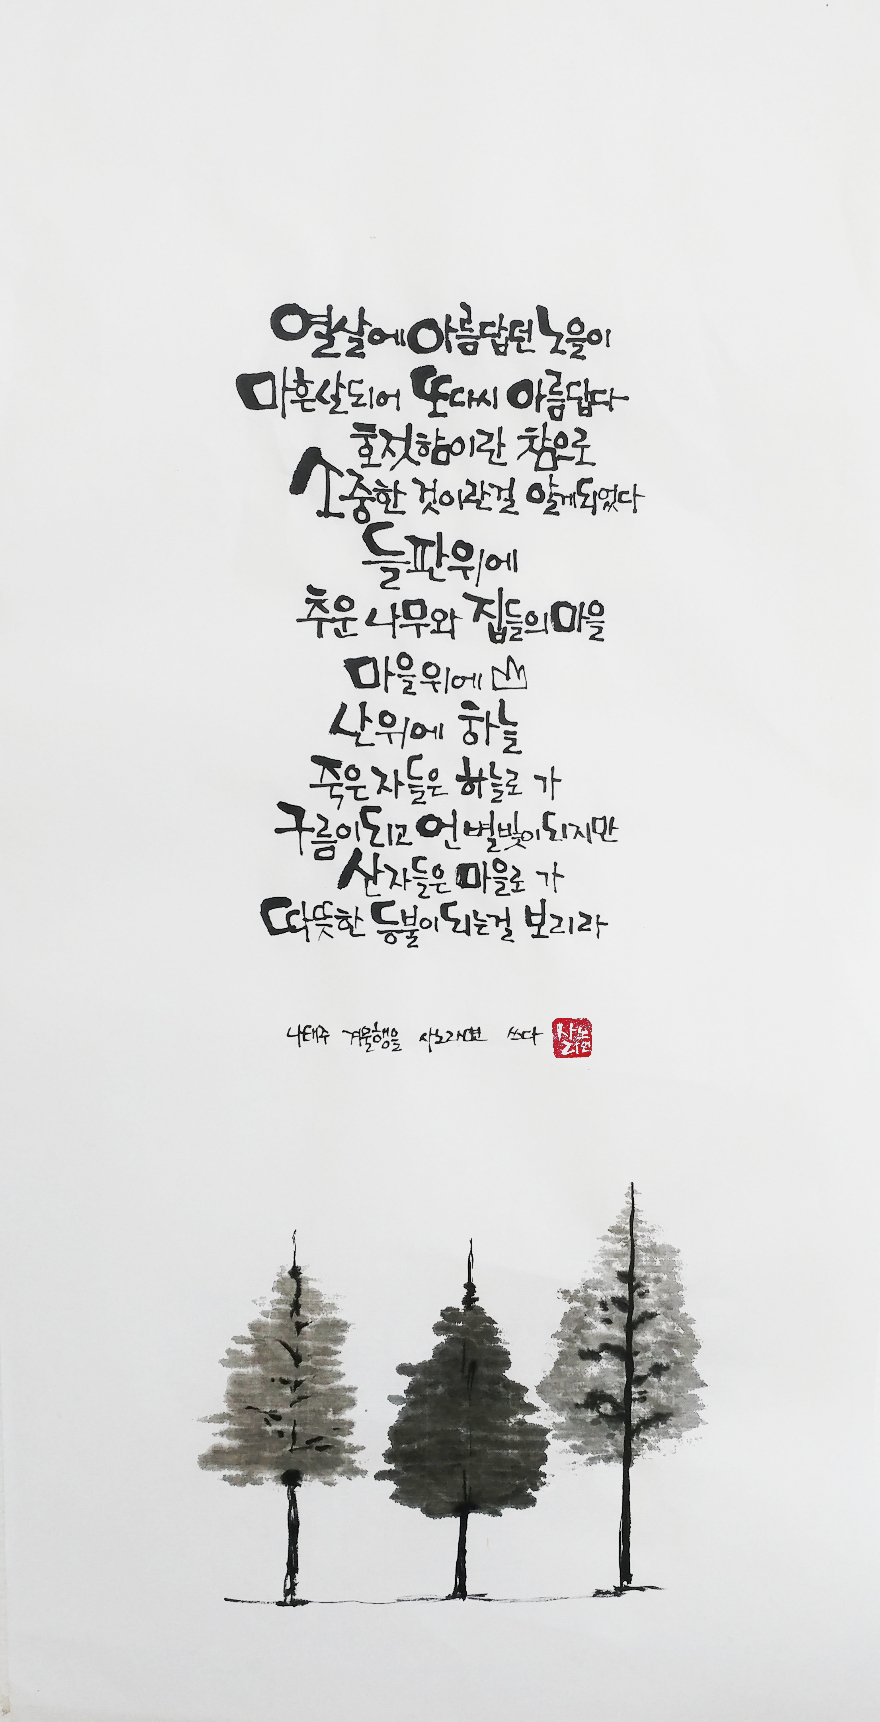 열살에 아름답던 노을이
마흔살되어 또다시 아름답다
호젓함이란 참으로
소중한 것이란걸 알게되었다
들판위에
추운 나무와 집들의 마을
마을위에 산
산위에 하늘
죽은 자들은 하늘로 가
구름이되고 언 별빛이되지만
산자들은 마을로 가
따뜻한 등불이되는걸 보리라
나태주 겨울행을 쓰다